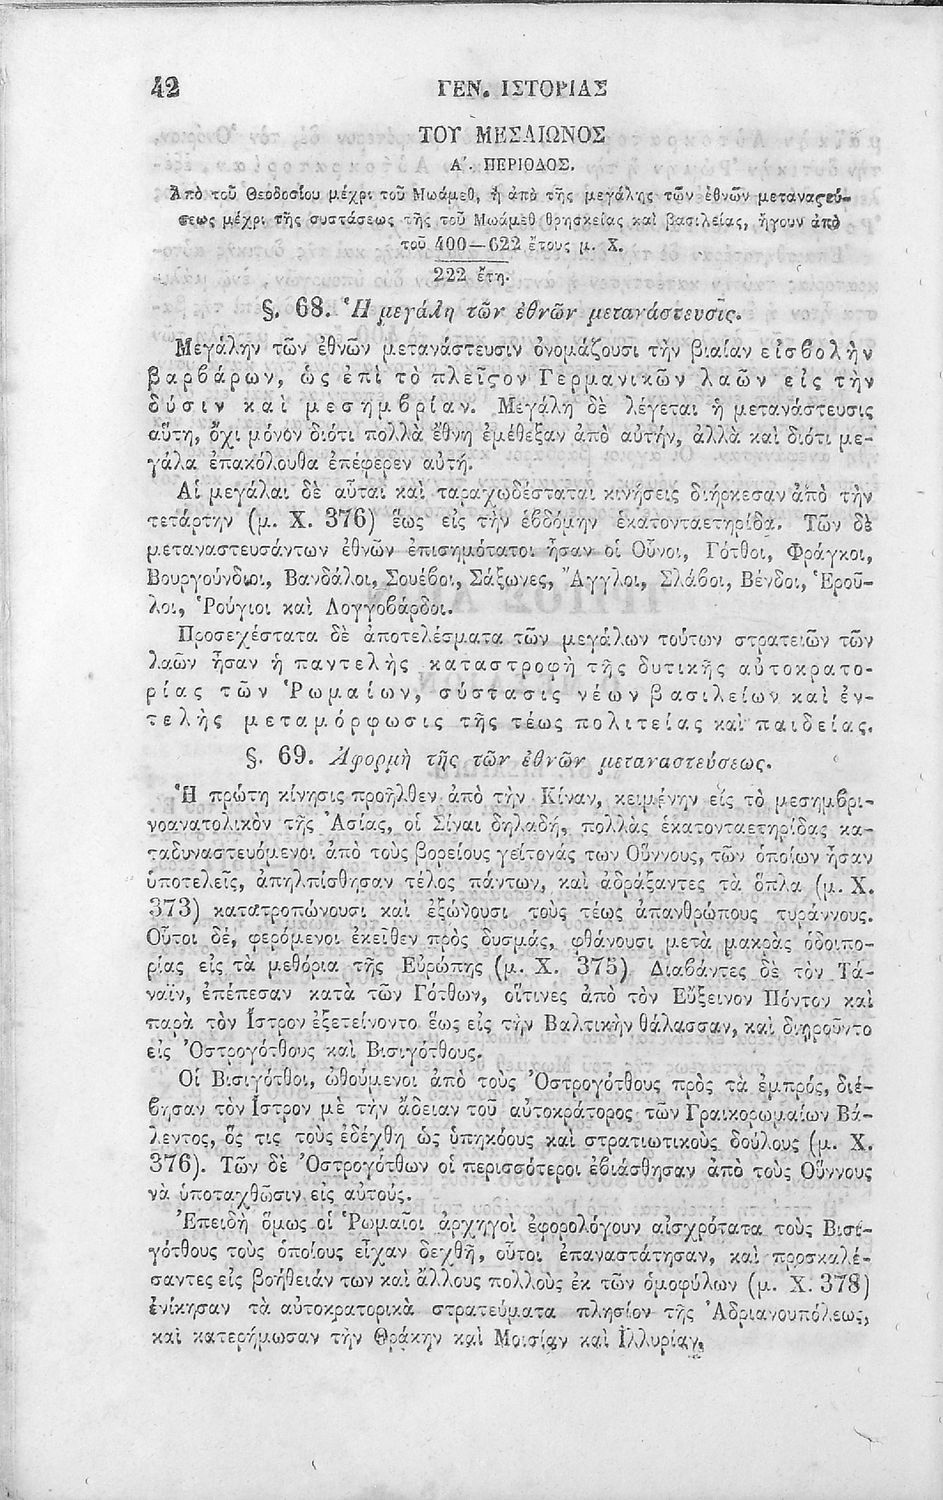 42 ΓΕΝ. ΙΣΤΟΡΙΑΣ
ΤΟΥ ΜΕΣΑΙΩΝΟΣ
Α΄. ΠΕΡΙΟΔΟΣ.
Ἀπὸ τοῦ Θεοδοσίου μέχρι τοῦ Μωάμεθ, ἢ ἀπὸ τῆς μεγάλης τῶν ἐθνῶν μεταναϛεύ-
σεως μέχρι τῆς συστάσεως τῆς τοῦ Μωάμεθ θρησκείας καὶ βασιλείας, ἤγουν ἀπὸ
τοῦ 400—622 ἔτους μ. Χ.
222 ἔτη.
§. 68. Ἡ μεγάλη τῶν ἐθνῶν μετανάστευσις.
Μεγάλην τῶν ἐθνῶν μετανάστευσιν ὀνομάζουσι τὴν βιαίαν εἰσβολὴν
βαρβάρων, ὡς ἐπὶ τὸ πλεῖϛον Γερμανικῶν λαῶν εἰς τὴν
δύσιν καὶ μεσημβρίαν. Μεγάλη δὲ λέγεται ἡ μετανάστευσις
αὕτη, ὄχι μόνον διότι πολλὰ ἔθνη ἐμέθεξαν ἀπὸ αὐτήν, ἀλλὰ καὶ διότι με-
γάλα ἐπακόλουθα ἐπέφερεν αὐτή.
Αἱ μεγάλαι δὲ αὗται καὶ ταραχωδέσταται κινήσεις διήρκεσαν ἀπὸ τὴν
τετάρτην (μ. Χ. 376) ἕως εἰς τὴν ἑβδόμην ἑκατονταετηρίδα. Τῶν δὲ
μεταναστευσάντων ἐθνῶν ἐπισημότατοι ἦσαν οἱ Οὗνοι, Γότθοι, Φράγκοι,
Βουργούνδιοι, Βανδάλοι, Σουέβοι, Σάξωνες, Ἄγγλοι, Σλάβοι, Βένδοι, Ἑροῦ-
λοι, Ῥούγιοι καὶ Λογγοβάρδοι.
Προσεχέστατα δὲ ἀποτελέσματα τῶν μεγάλων τούτων στρατειῶν τῶν
λαῶν ἦσαν ἡ παντελὴς καταστροφὴ τῆς δυτικῆς αὐτοκρατο-
ρίας τῶν Ῥωμαίων, σύστασις νέων βασιλείων καὶ ἐν-
τελὴς μεταμόρφωσις τῆς τέως πολιτείας καὶ παιδείας.
§. 69. Ἀφορμὴ τῆς τῶν ἐθνῶν μεταναστεύσεως.
Ἡ πρώτη κίνησις προῆλθεν ἀπὸ τὴν Κίναν, κειμένην εἰς τὸ μεσημβρι-
νοανατολικὸν τῆς Ἀσίας, οἱ Σίναι δηλαδή, πολλὰς ἑκατονταετηρίδας κα-
ταδυναστευόμενοι ἀπὸ τοὺς βορείους γείτονάς των Οὕννους, τῶν ὁποίων ἦσαν
ὑποτελεῖς, ἀπηλπίσθησαν τέλος πάντων, καὶ ἀδράξαντες τὰ ὅπλα (μ. Χ.
373) κατατροπώνουσι καὶ ἐξώνουσι τοὺς τέως ἀπανθρώπους τυράννους.
Οὗτοι δέ, φερόμενοι ἐκεῖθεν πρὸς δυσμάς, φθάνουσι μετὰ μακρὰς ὁδοιπο-
ρίας εἰς τὰ μεθόρια τῆς Εὐρώπης (μ. Χ. 375) Διαβάντες δὲ τὸν Τά-
ναϊν, ἐπέπεσαν κατὰ τῶν Γότθων, οἵτινες ἀπὸ τὸν Εὔξεινον Πόντον καὶ
παρὰ τὸν Ἴστρον ἐξετείνοντο ἕως εἰς τὴν Βαλτικὴν θάλασσαν, καὶ διῃροῦντο
εἰς Ὀστρογότθους καὶ Βισιγότθους.
Οἱ Βισιγότθοι, ὠθούμενοι ἀπὸ τοὺς Ὀστρογότθους πρὸς τὰ ἐμπρός, διέ-
βησαν τὸν Ἴστρον μὲ τὴν ἄδειαν τοῦ αὐτοκράτορος τῶν Γραικορωμαίων Βά-
λεντος, ὅς τις τοὺς ἐδέχθη ὡς ὑπηκόους καὶ στρατιωτικοὺς δούλους (μ. Χ.
376). Τῶν δὲ Ὀστρογότθων οἱ περισσότεροι ἐβιάσθησαν ἀπὸ τοὺς Οὕννους
νὰ ὑποταχθῶσιν εἰς αὐτούς.
Ἐπειδὴ ὅμως οἱ Ῥωμαῖοι ἀρχηγοὶ ἐφορολόγουν αἰσχρότατα τοὺς Βισι-
γότθους τοὺς ὁποίους εἶχαν δεχθῆ, οὗτοι ἐπαναστάτησαν, καὶ προσκαλέ-
σαντες εἰς βοήθειάν των καὶ ἄλλους πολλοὺς ἐκ τῶν ὁμοφύλων (μ. Χ. 378)
ἐνίκησαν τὰ αὐτοκρατορικὰ στρατεύματα πλησίον τῆς Ἀδριανουπόλεως,
καὶ κατερήμωσαν τὴν Θράκην καὶ Μοισίαν καὶ Ἰλλυρίαν.